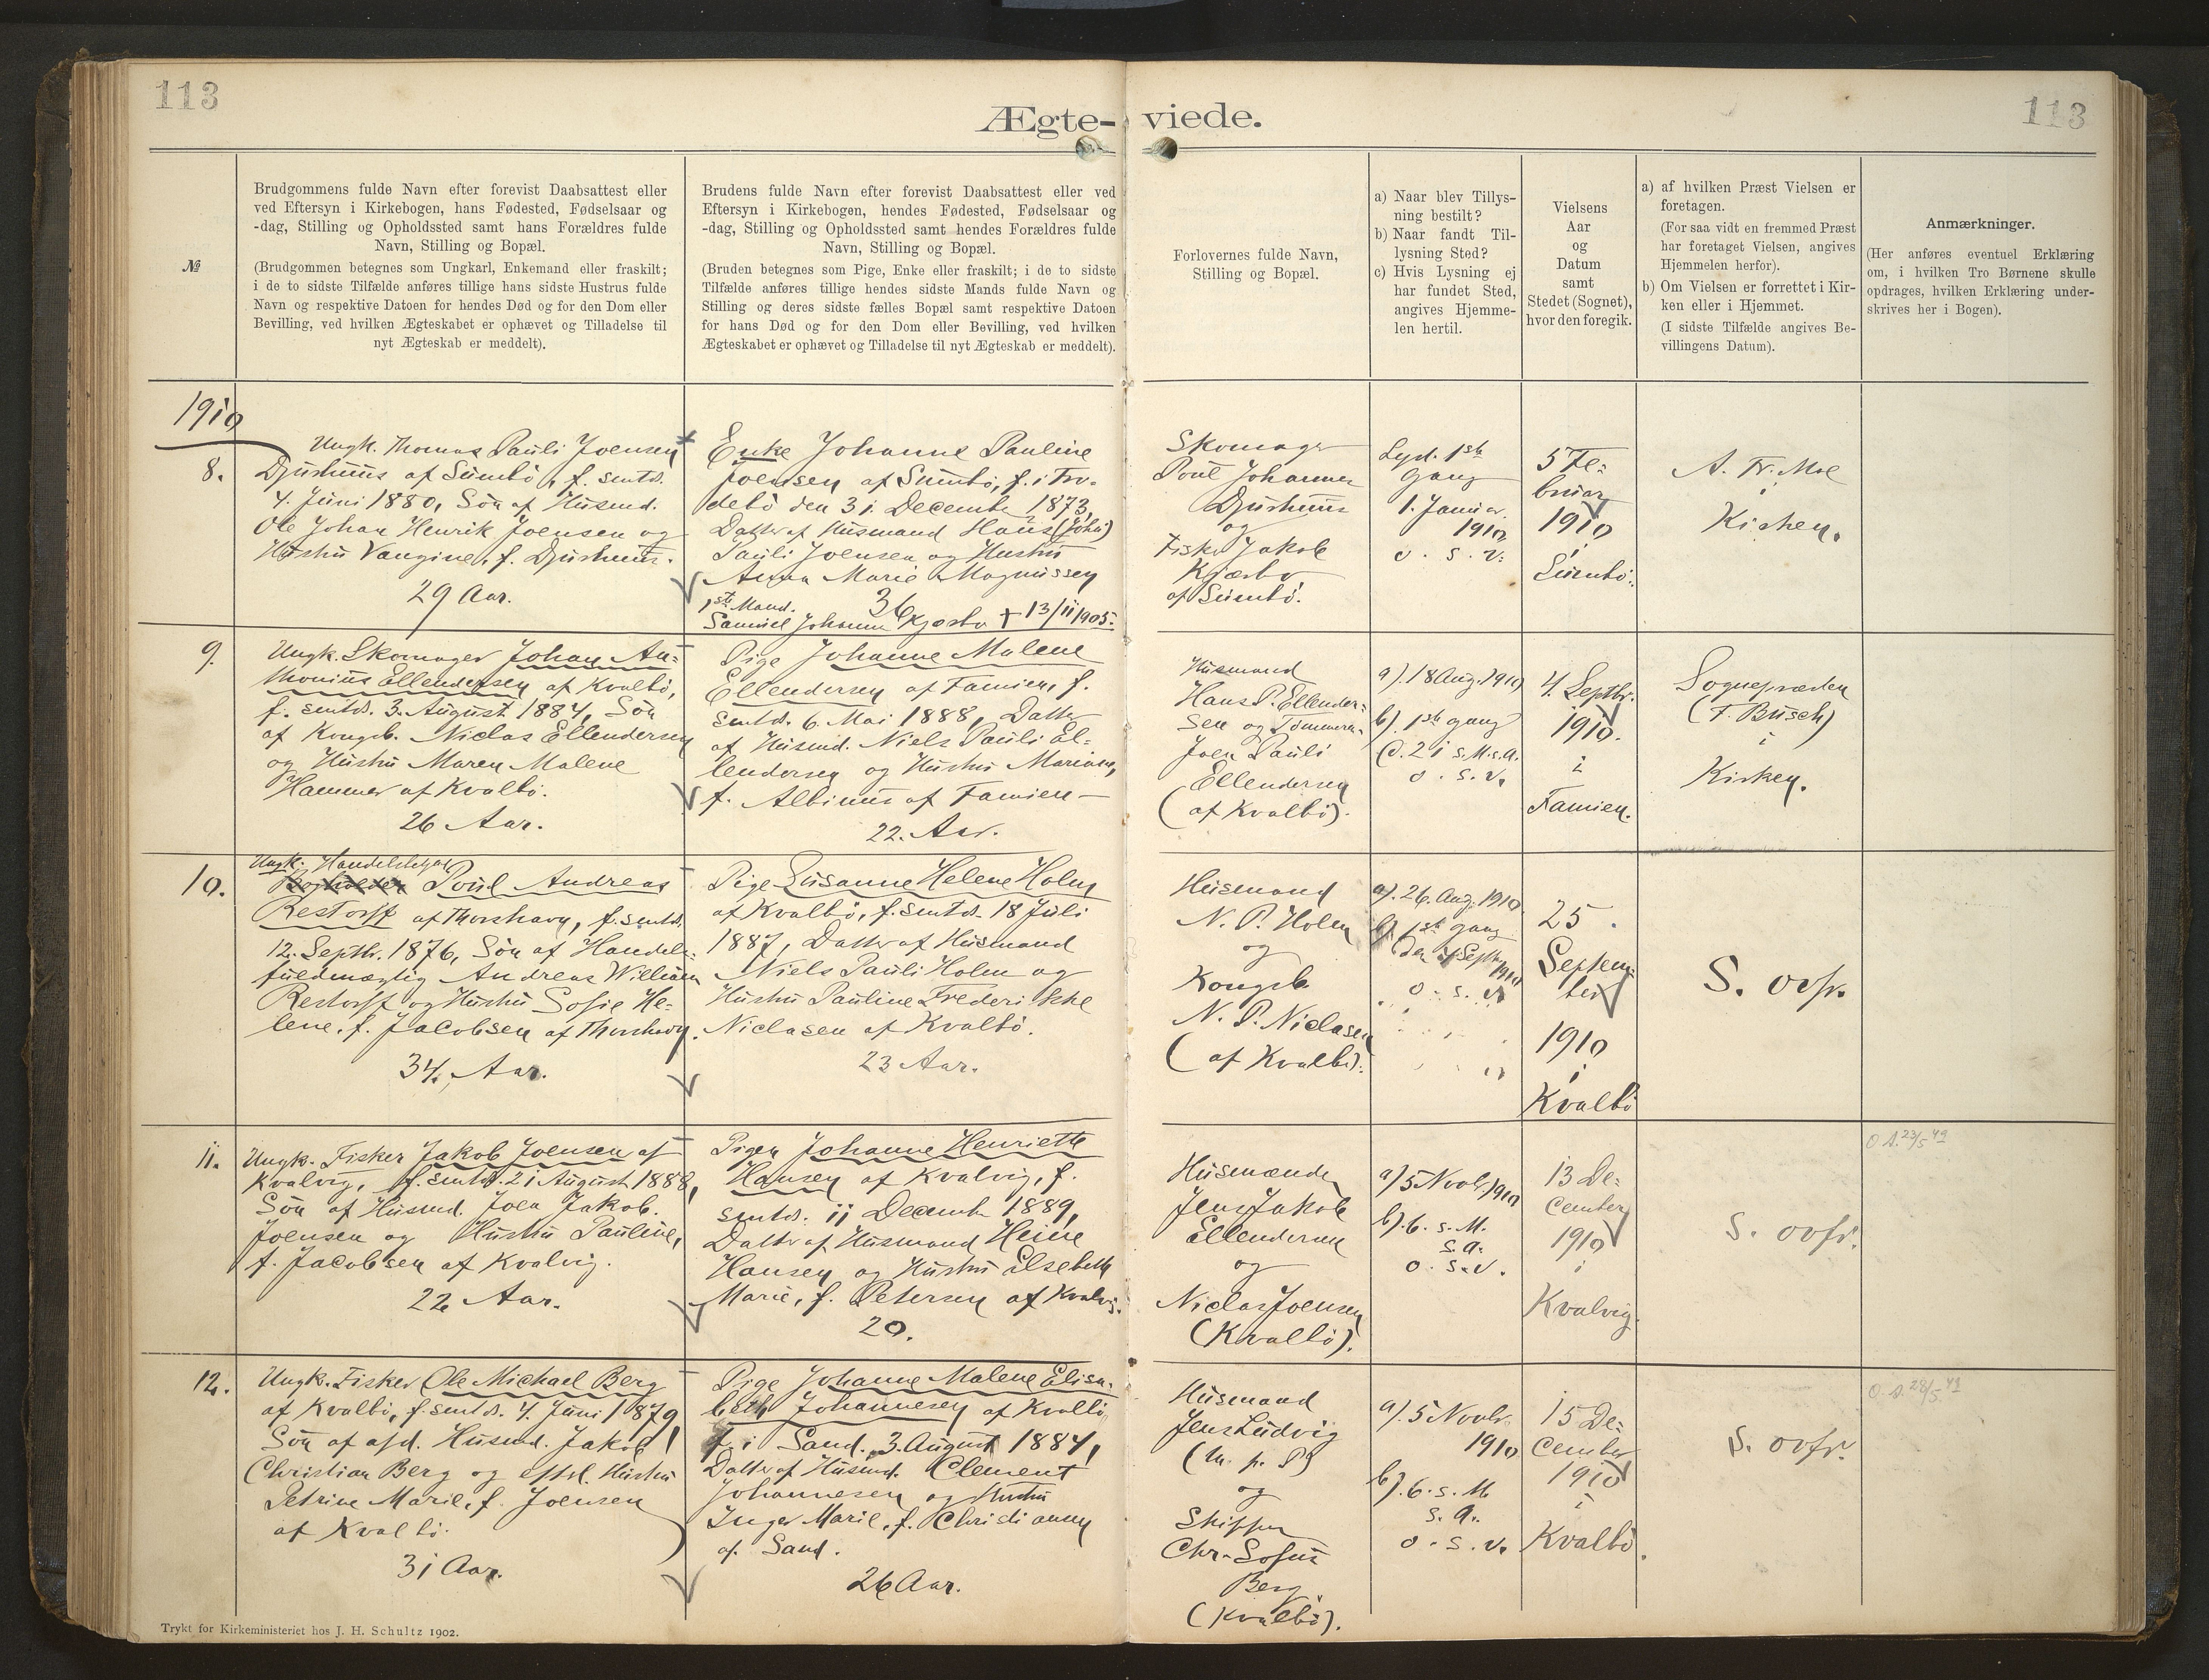 113
113
Ægte-viede.
№
Brudgommens fulde Navn efter forevist Daabsattest eller
ved Eftersyn i Kirkebogen, hans Fødested, Fødselsaar og
-dag, Stilling og Opholdssted samt hans Forældres fulde
Navn, Stilling og Bopæl.
(Brudgommen betegnes som Ungkarl, Enkemand eller fraskilt;
i de to sidste Tilfælde anføres tillige hans sidste Hustrus fulde
Navn og respektive Datoen for hendes Død og for den Dom eller
Bevilling, ved hvilken Ægteskabet er ophævet og Tilladelse til
nyt Ægteskab er meddelt).
Brudens fulde Navn efter forevist Daabsattest eller ved
Eftersyn i Kirkebogen, hendes Fødested, Fødselsaar og
-dag, Stilling og Opholdssted samt hendes Forældres fulde
Navn, Stilling og Bopæl.
(Bruden betegnes som Pige, Enke eller fraskilt; i de to sidste
Tilfælde anføres tillige hendes sidste Mands fulde Navn og
Stilling og deres sidste fælles Bopæl samt respektive Datoen
for hans Død og for den Dom eller Bevilling, ved hvilken
Ægteskabet er ophævet og Tilladelse til nyt Ægteskab er meddelt).
Forlovernes fulde Navn,
Stilling og Bopæl.
a) Naar blev Tillys-
ning bestilt?
b) Naar fandt Til-
lysning Sted?
c) Hvis Lysning ej
har fundet Sted,
angives Hjemme-
len hertil.
Vielsens
Aar
og
Datum
samt
Stedet (Sognet),
hvor den foregik.
a) af hvilken Præst Vielsen er
foretagen.
(For saa vidt en fremmed Præst
har foretaget Vielsen, angives
Hjemmelen herfor).
b) Om Vielsen er forrettet i Kir-
ken eller i Hjemmet.
(I sidste Tilfælde angives Be-
villingens Datum).
Anmærkninger.
(Her anføres eventuel Erklæring
om, i hvilken Tro Børnene skulle
opdrages, hvilken Erklæring under-
skrives her i Bogen).
1910
8.
Ungk. Thomas Pauli Joensen
Djurhuus af Sumbö, f. smtds.
4. Juni 1880, Sön af Husmd.
Ole Johan Henrik Joensen og
Hustru Vangine, f. Djurhuus.
29 Aar.
Enke Johanne Pauline
Joensen af Sumbö, f. i Fro-
debö den 31. December 1873,
Datter af Husmand Hans (Joh)
Pauli Joensen og Hustru
Anna Marie Magnussen
36
1ste Mand.
Samuel Johannes Kjærbo + 13/11 1905.
Skomager
Poul Johannes
Djurhuus
og
Fisker Jakob
Kjærbo
af Sumbö.
Lyst. 1ste
Gang
1. Januar
1910
o. s. v.
5 Fe-
bruar
1910
i
Sumbö.
A. Fr. Moe
i
Kirken.
9.
Ungk. Skomager Johan An-
thonius Ellendersen af Kvalbö,
f. smtds. 3. August 1884, Sön
af Kongsb. Niclas Ellendersen
og Hustru Maren Malene
Hammer af Kvalbö.
26 Aar.
Pige Johanne Malene
Ellendersen af Famien, f.
smtds. 6. Mai 1888, Datter
af Husmd. Niels Pauli El-
lendersen og Hustru Mariane,
f. Albinus af Famien
22. Aar.
Husmand
Hans P. Ellender-
sen og Tömmerm.
Joen Pauli
Ellendersen
(af Kvalbö).
a). 18 Aug. 1910
b). 1ste Gang
d. 21 s. M. s. A.
o. s. v.
4. Septbr.
1910.
i
Famien.
Sognepræsten
(F. Busch)
i
Kirken.
10.
Ungk. Handelsbetjent
Bogholder Poul Andreas
Restorff af Thorshavn, f. smtds.
12. Septbr. 1876, Sön af Handels-
fuldmægtig Andreas William
Restorff og Hustru Sofie He-
lene, f. Jacobsen af Thorshavn.
34. Aar.
Pige Susanne Helene Holm
af Kvalbö, f. smtds. 18 Juli
1887, Datter af Husmand
Niels Pauli Holm og
Hustru Pauline Frederikke
Niclasen af Kvalbö.
23 Aar.
Husmand
N. P. Holm
og
Kongsb.
N. P. Niclasen
(af Kvalbö).
a). 26. Aug. 1910
b). 1ste Gang
den 4 Septbr.
1910
o. s. v.
25
Septem-
ber
1910
i
Kvalbö
S. ovfr.
11.
Ungk. Fisker Jakob Joensen af
Kvalvig, f. smtds. 21 August 1888,
Sön af Husmd. Joen Jakob
Joensen og Hustru Pauline,
f. Jacobsen af Kvalvig.
22 Aar.
Pigen Johanne Henriette
Hansen af Kvalvig, f.
smtds. 11 December 1889,
Datter af Husmand Heine
Hansen og Hustru Elsebeth
Marie, f. Petersen af Kvalvig.
20.
Husmænder
Jens Jakob
Ellendersen
og
Niclas Joensen
(Kvalbö).
a) 5 Novbr. 1910
b). 6. s. M.
s. A.
o. s. v.
13 De-
cember
1910
i
Kvalvig.
S. ovfr.
O. A. 23/5 49
12.
Ungk. Fisker Ole Michael Berg
af Kvalbö, f. smtds. 4. Juni 1879,
Sön af afd. Husmd. Jakob
Christian Berg og eftl. Hustru
Petrine Marie, f. Joensen
af Kvalbö.
31 Aar.
Pige Johanne Malene Elisa-
beth Johannesen af Kvalbö,
f. i Sand. 3. August 1884,
Datter af Husmd. Clement
Johannesen og Hustru
Inger Marie, f. Christiansen
af Sand.
26 Aar.
Husmand
Jens Ludvig
og
Skipper
Chr. Sofus
Berg
(Kvalbö).
a). 5 Novbr.
1910
b). 6. s. M.
s. A.
o. s. v.
15 De-
cember
1910
i
Kvalbö.
S. ovfr.
O. A. 28/5 49
Trykt for Kirkeministeriet hos J. H. Schultz 1902.